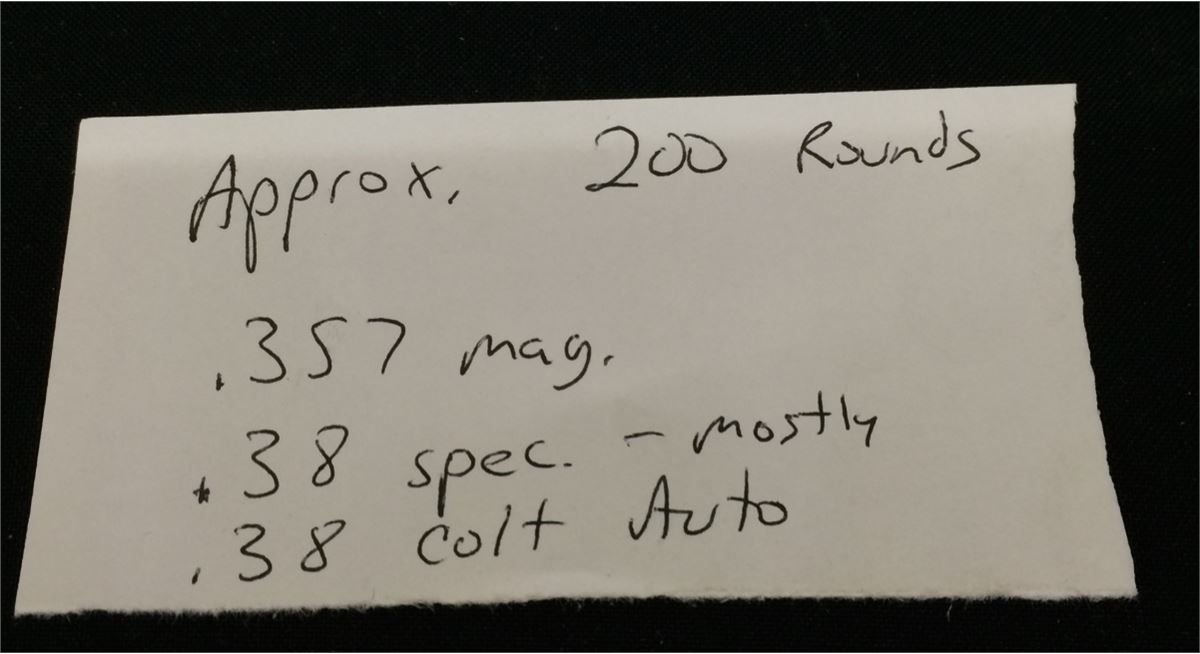 Approx. 200 Rounds
.357 mag.
.38 spec. - mostly
.38 colt Auto